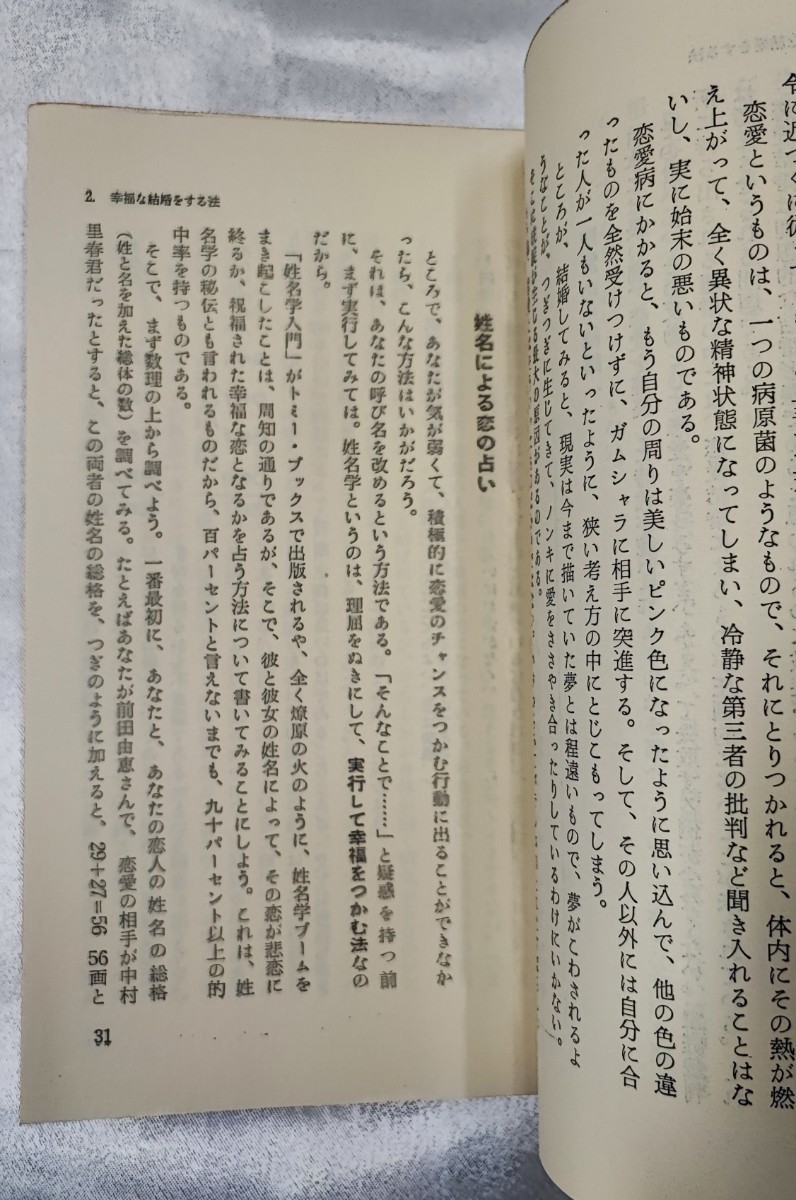 恋愛というものは、一つの病原菌のようなもので、それにとりつかれると、体内にその熱が燃
え上がって、全く異状な精神状態になってしまい、冷静な第三者の批判など聞き入れることはな
いし、実に始末の悪いものである。
恋愛病にかかると、もう自分の周りは美しいピンク色になったように思い込んで、他の色の違
ったものを全然受けつけずに、ガムシャラに相手に突進する。そして、その人以外には自分に合
った人が一人もいないといったように、狭い考え方の中にとじこもってしまう。
ところが、結婚してみると、現実は今まで描いていた夢とは程遠いもので、夢がこわされるよ
うなことが、つぎつぎに生じてきて、ノンキに愛をささやき合ったりしているわけにいかない。
2. 幸福な結婚をする法
姓名による恋の占い
ところで、あなたが気が弱くて、積極的に恋愛のチャンスをつかむ行動に出ることができなか
ったら、こんな方法はいかがだろう。
それは、あなたの呼び名を改めるという方法である。「そんなことで……」と疑惑を持つ前
に、まず実行してみては。姓名学というのは、理屈をぬきにして、実行して幸福をつかむ法なの
だから。
「姓名学入門」がトミー・ブックスで出版されるや、全く燎原の火のように、姓名学ブームを
まき起こしたことは、周知の通りであるが、そこで、彼と彼女の姓名によって、その恋が悲恋に
終るか、祝福された幸福な恋となるかを占う方法について書いてみることにしよう。これは、姓
名学の秘伝とも言われるものだから、百パーセントと言えないまでも、九十パーセント以上の的
中率を持つものである。
そこで、まず数理の上から調べよう。一番最初に、あなたと、あなたの恋人の姓名の総格
(姓と名を加えた総体の数)を調べてみる。たとえばあなたが前田由恵さんで、恋愛の相手が中村
里春君だったとすると、この両者の姓名の総格を、つぎのように加えると、29+27=56 56画と
31